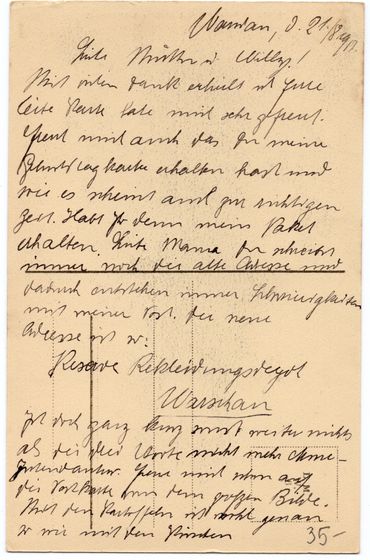 Warschau, d. 21/8 191
Liebe Mutter u. Willy!
Mit vielen Dank erhielt ich Eure
liebe Karte habe mich sehr gefreut.
Freut mich auch das Du meine
Geburtstagkarte erhalten hast und
wie es scheint auch zur richtigen
Zeit. Habt Ihr denn mein Paket
erhalten. Liebe Mama Du schreibst
immer noch die alte Adresse und
dadurch entstehen immer Schwierigkeiten
mit meiner Post. die neue
Adresse ist nur:
Reserve Bekleidungsdepot
Warschau
Ist doch ganz kurz sonst weiter nichts
als die drei Worte nicht mehr Arme-
Intendantur. Freue mich schon auf
die Postkarte von dem großen Bilde.
Mit den Kartoffeln ist nicht genau
so wie mit den
35-